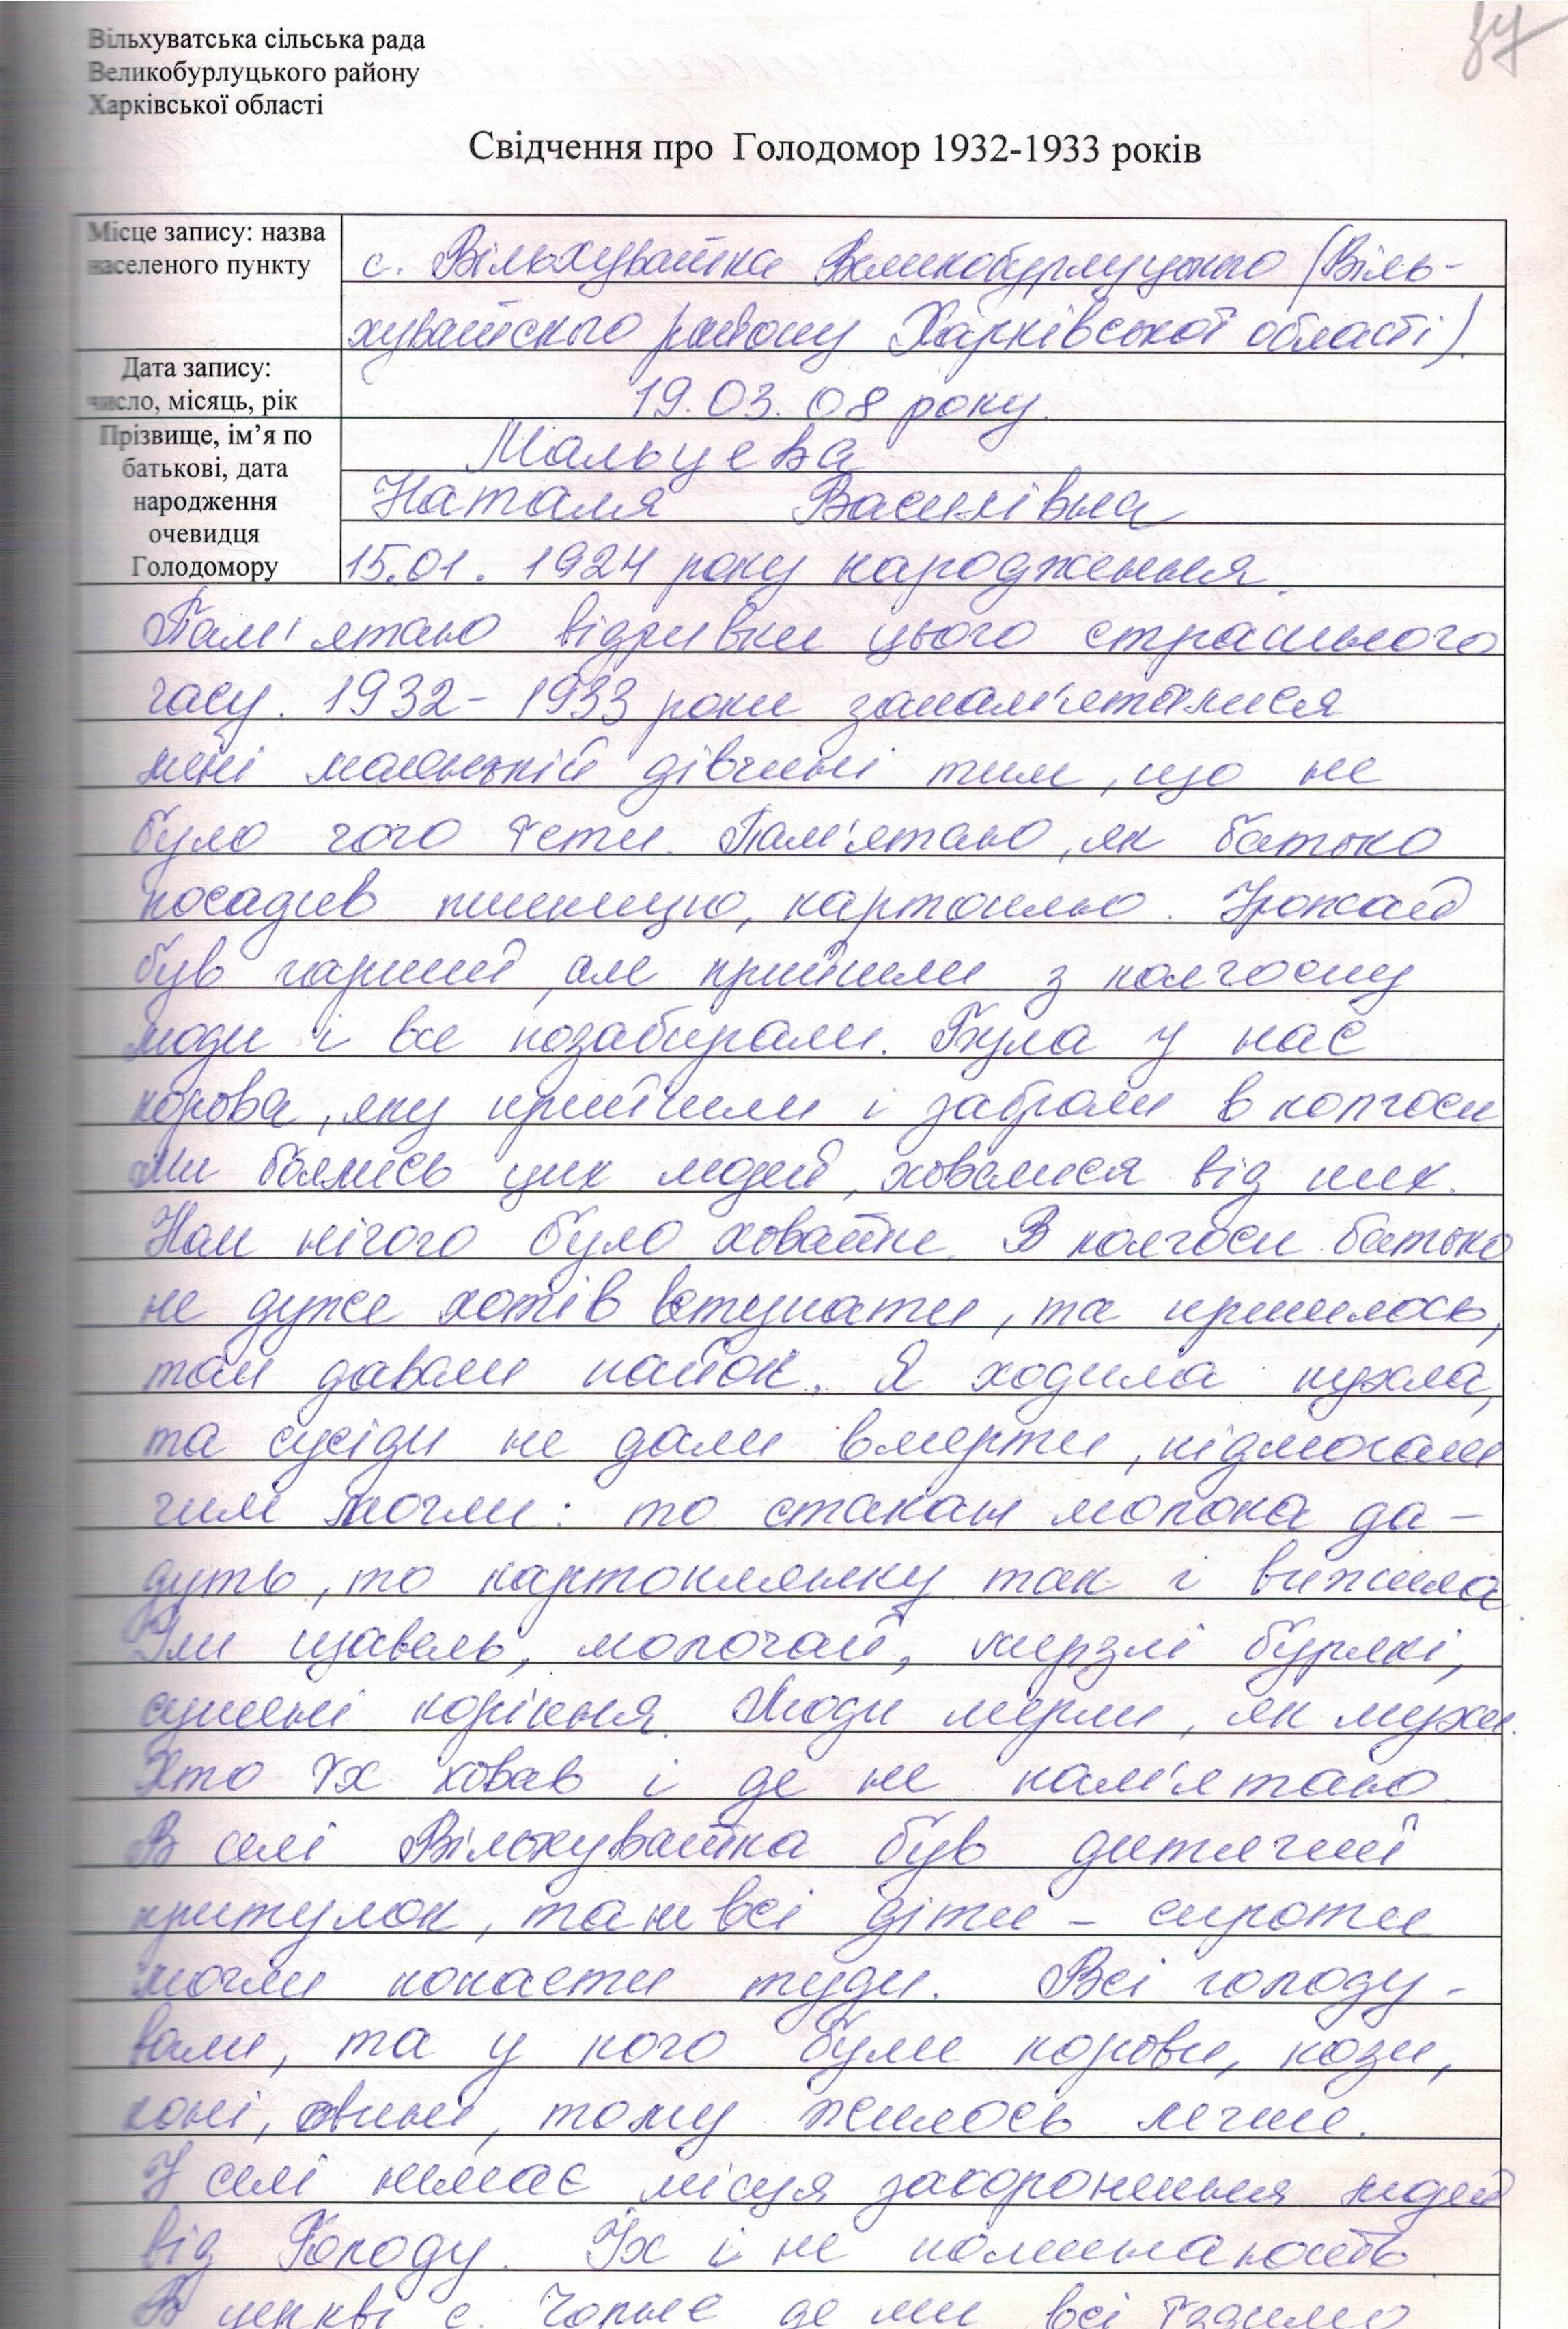 зу
Вільхуватська сільська рада
Великобурлуцького району
Харківської області
Свідчення про Голодомор 1932-1933 років
Місце запису: назва
населеного пункту
с. Вільхуватка Великобурлуцького (Віль-
хуватського району Харківської області)
Дата запису:
число, місяць, рік
19.03.08 року.
Прізвище, ім’я по
батькові, дата
народження
очевидця
Голодомору
Мальцева
Наталя Василівна
15.01.1924 року народження.
Пам'ятаю відривки цього страшного
часу. 1932-1933 роки запам'яталися
мені маленькій дівчині тим, що не
було чого їсти. Пам'ятаю, як батько
посадив пшеницю, картоплю. Урожай
був гарний, але прийшли з колгоспу
люди і все позабирали. Була у нас
корова, яку прийшли і забрали в колгосп
Ми боялись цих людей, ховалися від них.
Нам нічого було ховати. В колгосп батько
не дуже хотів вступати, та прийшлось,
там давали пайок. Я ходила пухла,
та сусіди не дали вмерти, підмогали
чим могли: то стакан молока да-
дуть, то картоплинку так і вижила
Їли щавель, молочай, мерзлі буряки,
сушені коріння. Люди мерли, як мухи.
Хто їх ховав і де не пам'ятаю.
В селі Вільхуватка був дитячий
притулок, там всі діти - сироти
могли попасти туди. Всі голоду-
вали, та у кого були корови, кози,
коні, свині, тому жилось легше.
У селі немає місця захоронення людей
від Голоду. Їх і не поминають
В церкві с. Чорне де ми всі їздимо